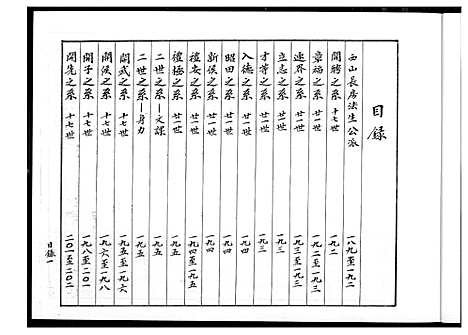 目錄
西山長房法生公派 一八九至一九二
開時之系 十七世 一九二
章福之系 廿一世 一九二至一九三
速界之系 廿一世 一九三至一九三
立志之系 廿一世 一九三
才等之系 廿一世 一九三
入德之系 廿一世 一九四
昭田之系 廿一世 一九四
新侯之系 廿一世 一九四
禮安之系 廿一世 一九四至一九五
禮極之系 廿一世 一九五
二世之系 一文謀 一九五
二世之系 一身力 一九五
開武之系 十七世 一九五至一九六
開侯之系 十七世 一九六至一九八
開子之系 十七世 一九八至二〇一
開先之系 十七世 二〇一至二〇二
目錄一